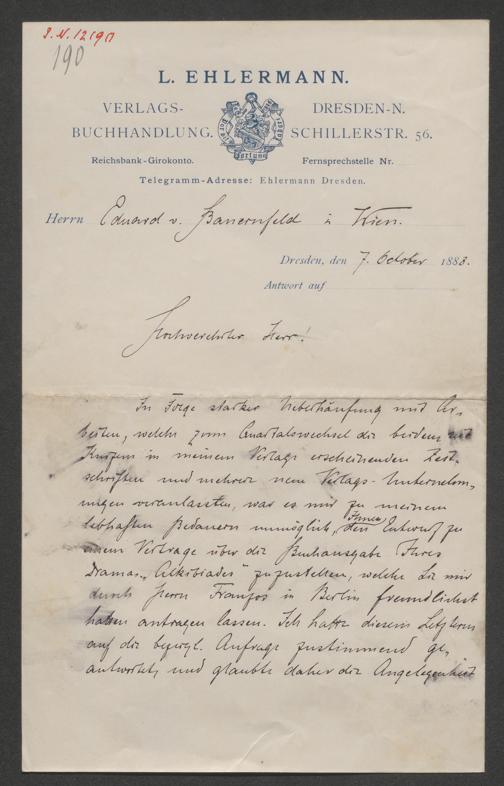 I.N. 12191
190
L. EHLERMANN.
VERLAGS-
BUCHHANDLUNG.
DRESDEN-N.
SCHILLERSTR. 56.
Reichsbank-Girokonto.
Fernsprechstelle Nr.
Telegramm-Adresse: Ehlermann Dresden.
Herrn Eduard v. Bauernfeld in Wien.
Dresden, den 7. October 1888.
Antwort auf
Hochverehrter Herr!
In Folge starker Ueberhäufung mit Ar-
beiten, welche zum Quartalswechsel die beiden
in meinem Verlage erscheinenden Zeit-
schriften und mehrere neue Verlags-Unternehm-
ungen veranlassten, war es mir zu meinem
lebhaften Bedauern unmöglich, Ihnen den Entwurf zu
einem Vertrage über die Buchausgabe Ihres
Dramas „Alkibiades" zuzustellen, welche Sie mir
durch Herrn Franzos in Berlin freundlichst
haben antragen lassen. Ich hatte diesem Letzteren
auf die bezügl. Anfrage zustimmend ge-
antwortet, und glaubte daher die Angelegenheit